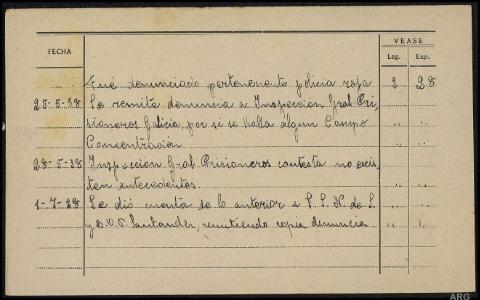 FECHA VEASE
Leg. Exp.
Fué denunciado perteneciente policia roja 3 28
25-5-38 Se remite denuncia a Inspección Gral Pri-
sioneros Galicia, por si se halla algun Campo " "
Concentración " "
28-5-38 Inspección Gral. Prisioneros contesta no exis-
ten antecedentes. " "
1-7-38 Se dió cuenta de lo anterior a S. S. N. de S.
y D.O.P. Santander, remitiendo copia denuncia " "
ARG